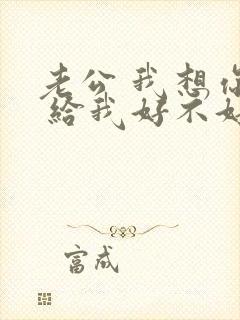 老公我想你
給我好不好
富成